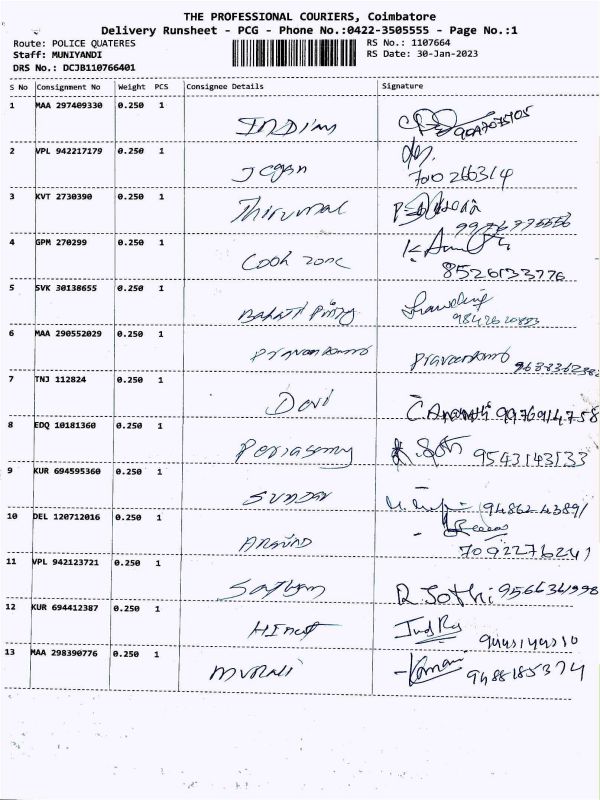 THE PROFESSIONAL COURIERS, Coimbatore
Delivery Runsheet - PCG - Phone No.:0422-3505555 - Page No.:1
Route: POLICE QUATERES RS No.: 1107664
Staff: MUNIYANDI RS Date: 30-Jan-2023
DRS No.: DCJB110766401
S No Consignment No Weight PCS Consignee Details Signature
1 MAA 297409330 0.250 1
Indian
2 VPL 942217179 0.250 1
Jegan 700266314
3 KVT 2730390 0.250 1
Thirumal
4 GPM 270299 0.250 1
Cook zone 8526133776
5 SVK 30138655 0.250 1
6 MAA 290552029 0.250 1
7 TNJ 112824 0.250 1
Devi 9976914758
8 EDQ 10181360 0.250 1
Periasamy 9543143133
9 KUR 694595360 0.250 1
Sundar 9486243891
10 DEL 120712016 0.250 1
Aravind 7092276241
11 VPL 942123721 0.250 1
R. Jothi 9566361998
12 KUR 694412387 0.250 1
13 MAA 298390776 0.250 1
Murali 9488185374